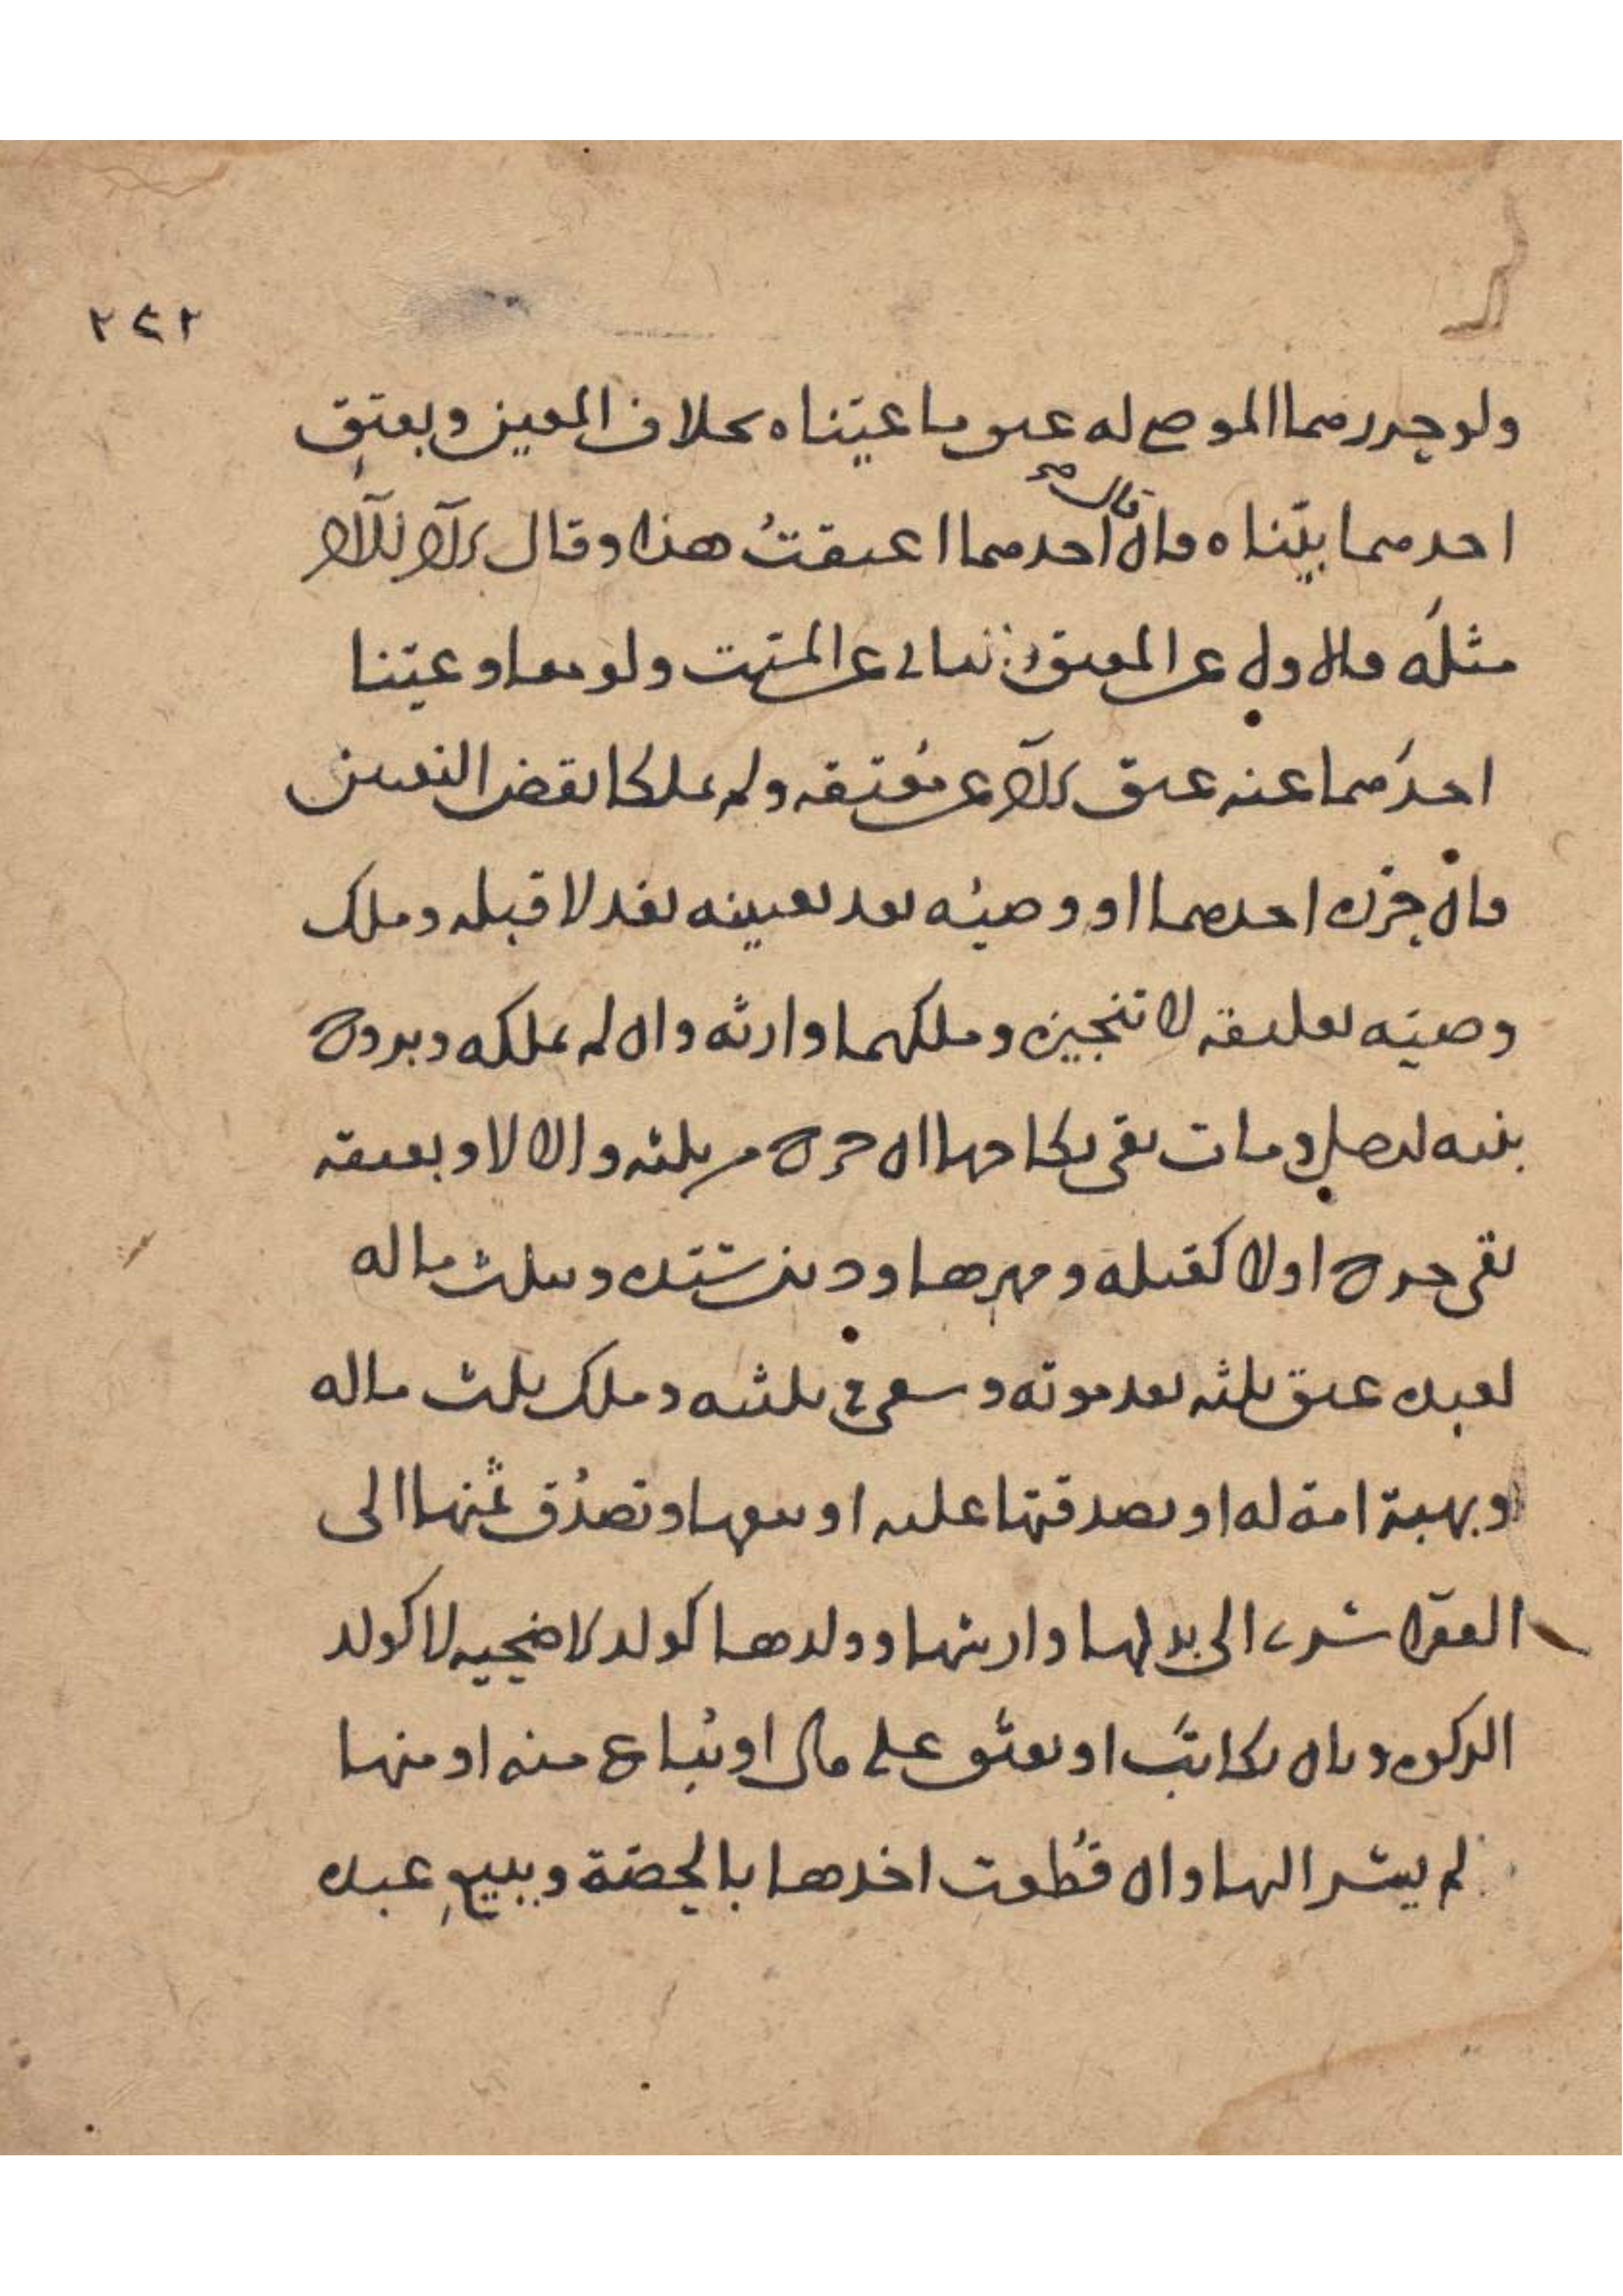 ٢٤٢
ولو حررهما الموصى له عتق ما عيّناه بخلاف المعين وبعتق
احدهما بيّناه فان قال احدهما اعتقتُ هذا وقال الآخر للآخر
مثله فالاول عن المعتق والثاني عن الميت ولو معا وعيّنا
احدهما عنه عتق الآخر عن مُعتقه ولم يملكا نقض التعيين
فان حرره احدهما او وصيّه بعد تعيينه نفذ لا قبله وملك
وصيّه تعليقه لا تنجيزه وملكهما وارثه وان لم يملكه وبزوجة
بنيه ومات بقي نكاحها ان خرجت من ثلثه والا لا وبعتقه
بقي خرجت اولا كقتله ومهرها ودين وبثلث ماله
لعبده عتق ثلثه بعد موته وسعى في ثلثيه وملك ثلث ماله
وبهبة امة له او بصدقتها عليه او ببيعها وتصدّق ثمنها الى
الفقراء سرى الى بدلها وارشها وولدها كولد الاضحية لا كولد
الزكوة وبان يكاتبَ او يعتق على مال او تُباع منه او منها
لم يسر اليها وان قُطعت اخذها بالحصّة وببيع عبده